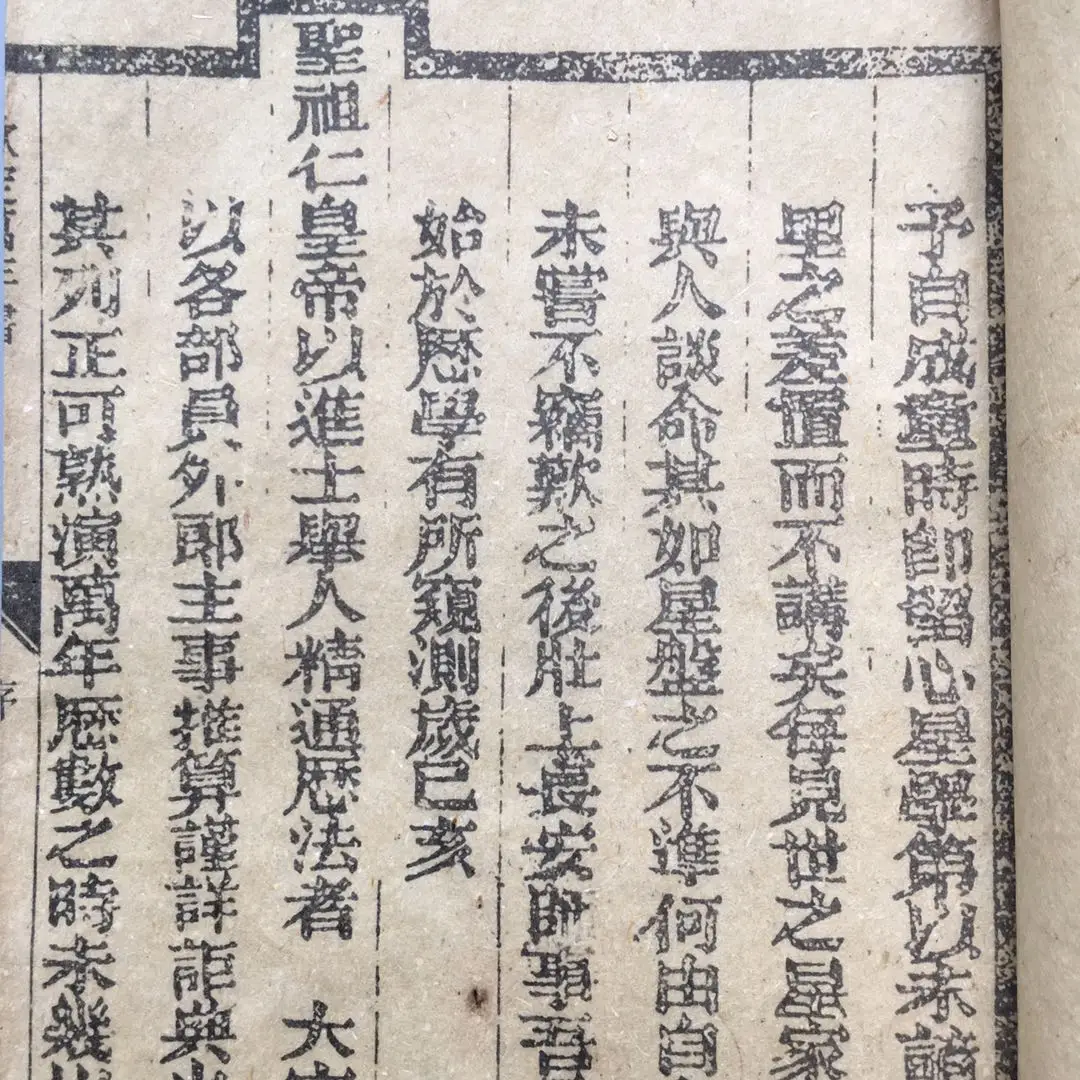 予自成童時即留心星學第以未
里之差置而不講矣每見世之星家
與人談命其如星盤之不準何由自
未嘗不竊歎之後壯上長安師事吾
始於厯學有所窺測歲已亥
聖祖仁皇帝以進士舉人精通厯法者 大
以各部員外郎主事推算謹詳詎與
其列正可熟演萬年厯數之時未幾